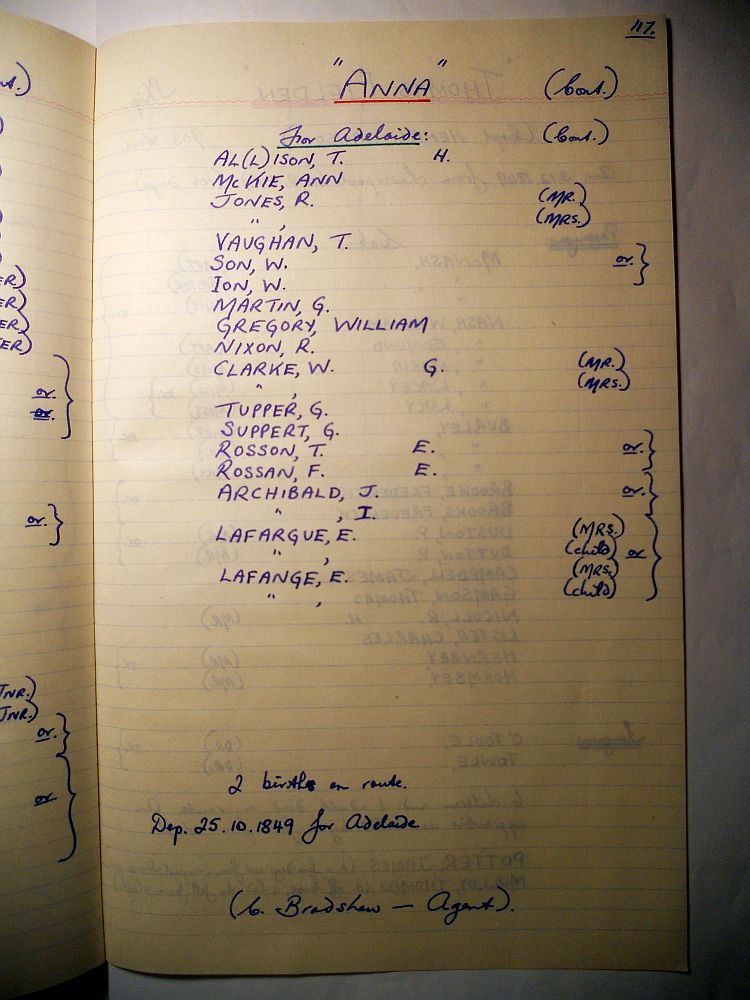 117.
"ANNA" (Cont.)
For Adelaide: (Cont.)
AL(L)ISON, T. H.
McKIE, ANN
JONES, R. (MR.)
" , (MRS.)
VAUGHAN, T.
SON, W. or.
ION, W.
MARTIN, G.
GREGORY, WILLIAM
NIXON, R.
CLARKE, W. G. (MR.)
" , (MRS.)
TUPPER, G.
SUPPERT, G.
ROSSON, T. E. or.
ROSSAN, F. E.
ARCHIBALD, J. or.
" , I.
LAFARGUE, E. (MRS.)
" , (child) or
LAFANGE, E. (MRS.)
" , (child)
2 births en route.
Dep. 25.10.1849 for Adelaide
(C. Bradshaw — Agent).
ER)
ER)
ER)
ER)
or.
or.
or.
JNR.)
JNR.)
or.
or.